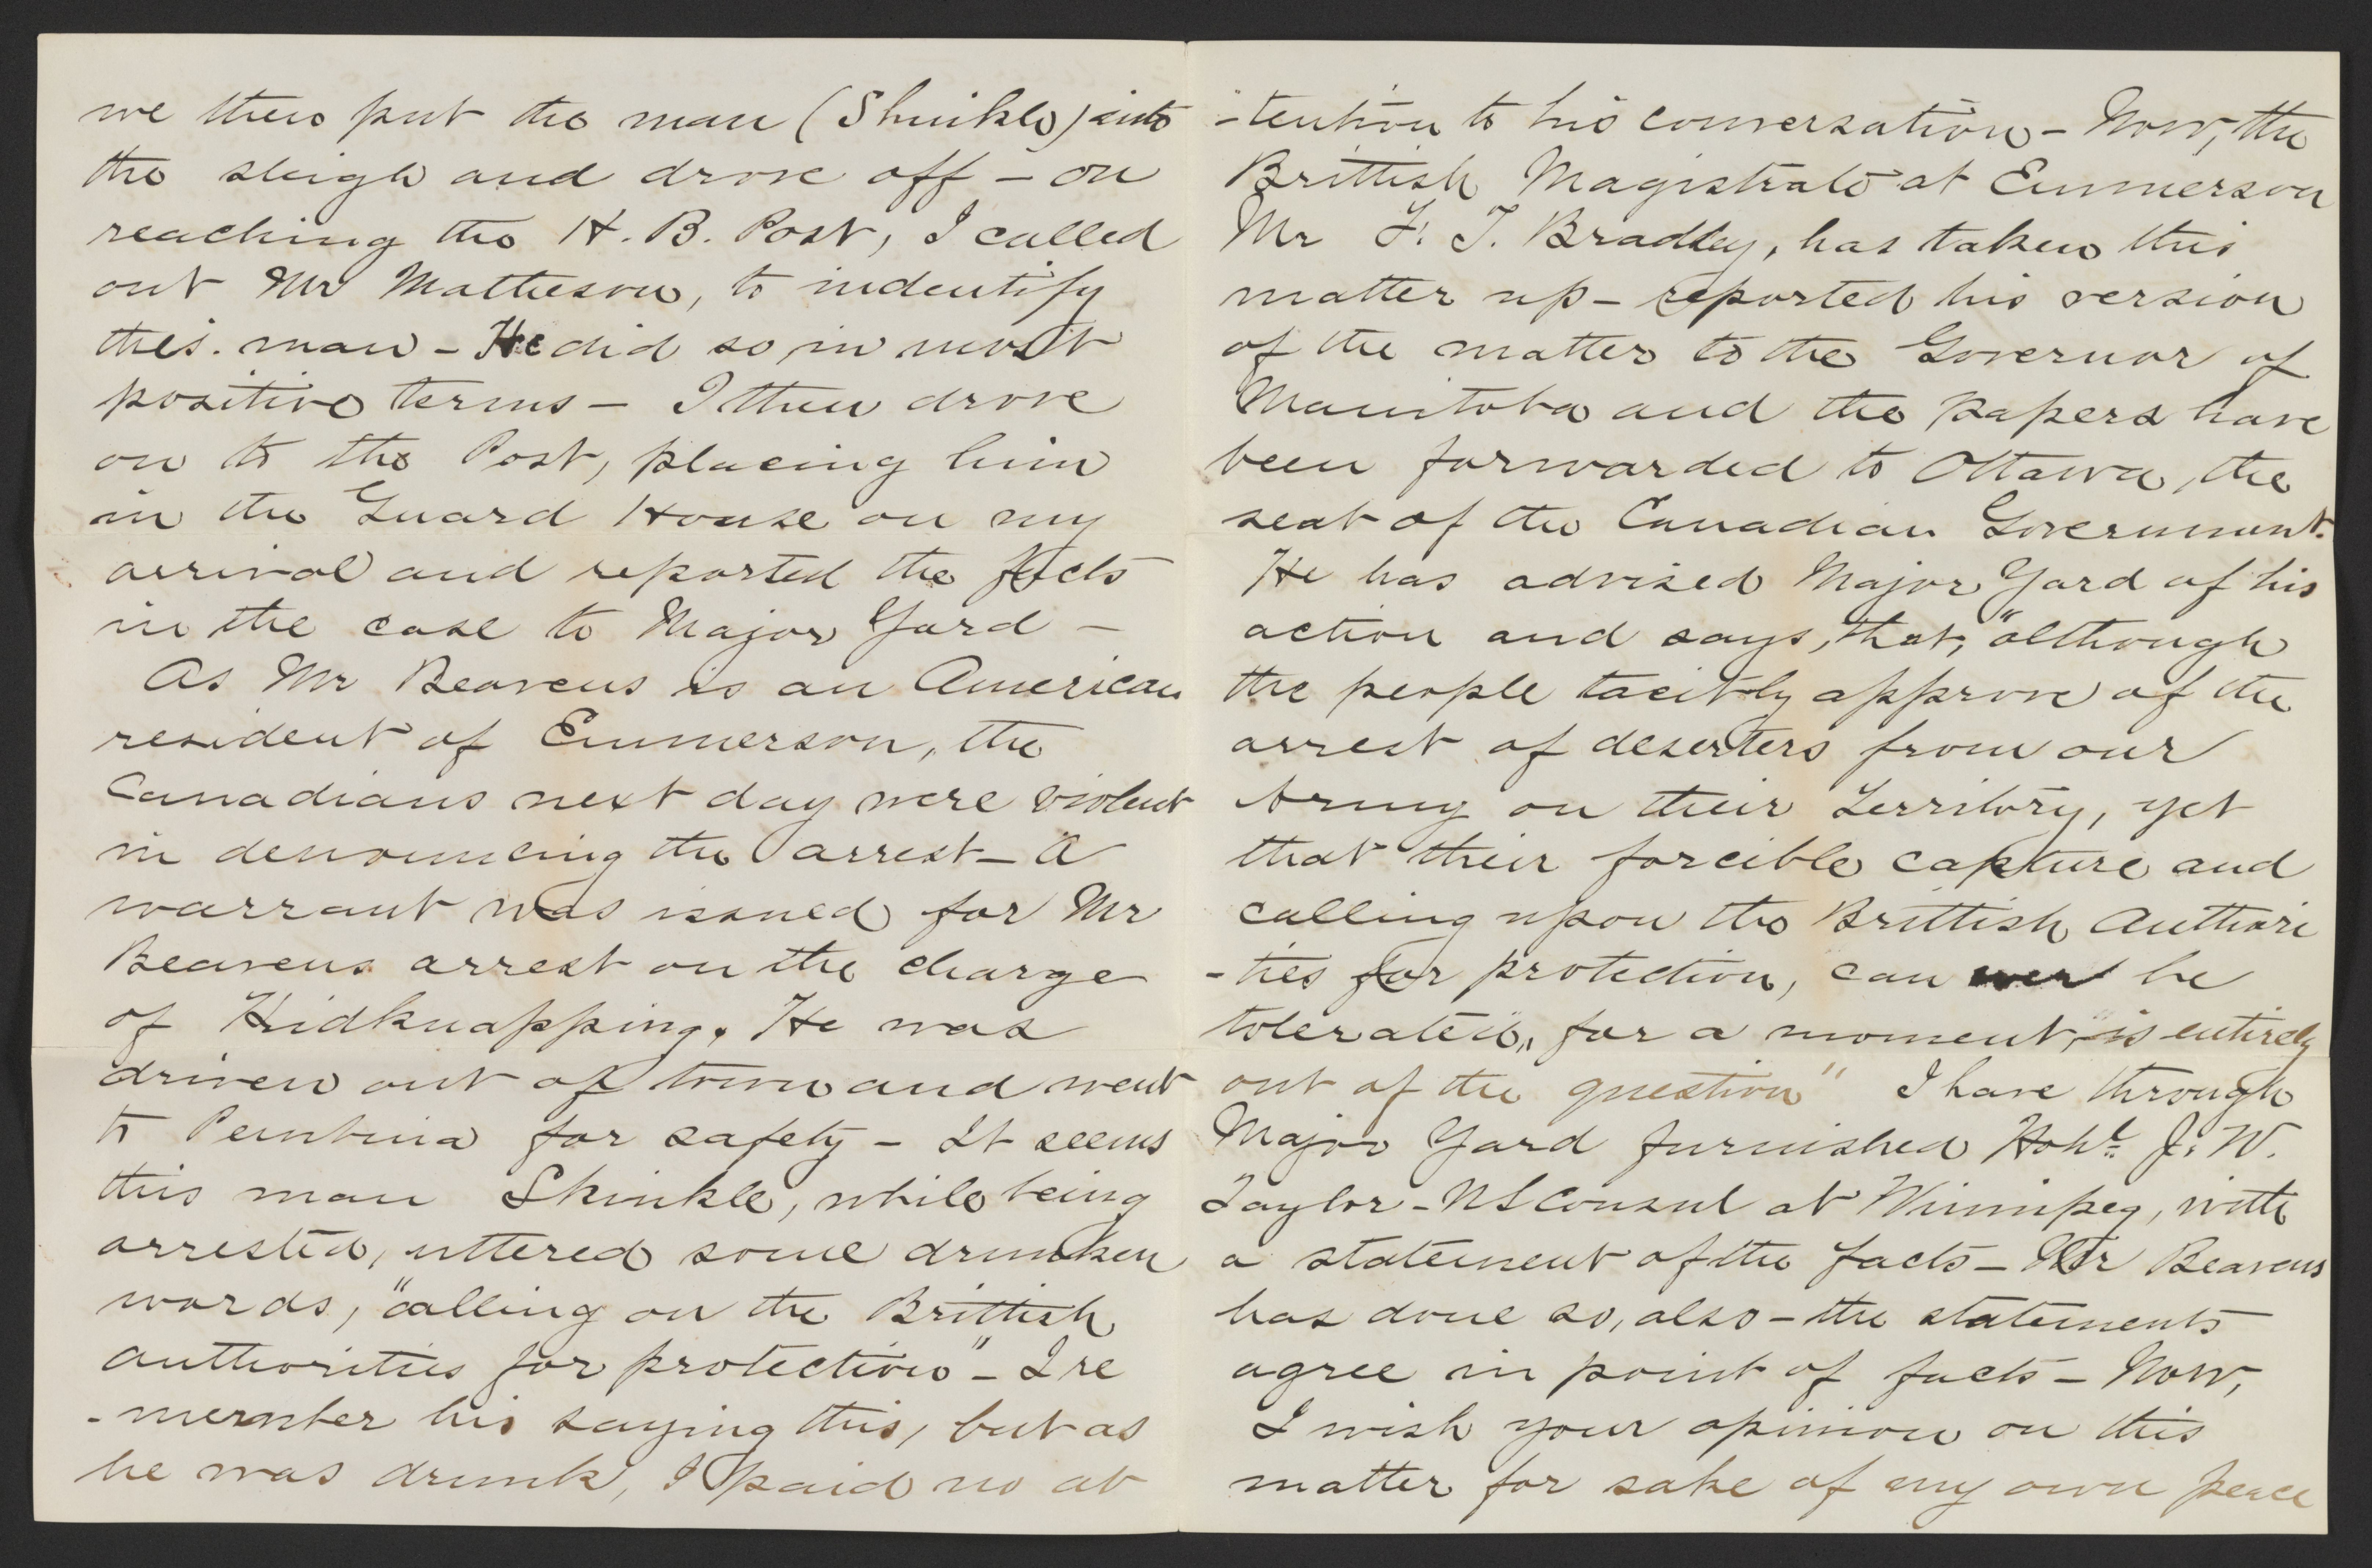 we then put the man (Shinkle) into
the sleigh and drove off – on
reaching the H. B. Post, I called
out Mr Matheson, to indentify
this. man – He did so in most
positive terms – I then drove
on to the Post, placing him
in the Guard House on my
arrival and reported the facts
in the case to Major Yard –
As Mr Beavens is an American
resident of Emmerson, the
Canadians next day were violent
in denouncing the arrest – A
warrant was issued for Mr
Beavens arrest on the charge
of Kidknapping. He was
driven out of town and went
to Pembina for safety – It seems
this man Shinkle, while being
arrested, uttered some drunken
words, "calling on the Brittish
authorities for protection" – I re
-member his saying this, but as
he was drunk, I paid no at
-tention to his conversation – Now, the
Brittish Magistrate at Emmerson
Mr F. T. Bradley, has taken this
matter up – reported his version
of the matter to the Governor of
Manitoba and the papers have
been forwarded to Ottawa, the
seat of the Canadian Government.
He has advised Major Yard of his
action and says, that, "although
the people tacitly approve of the
arrest of deserters from our
Army on their Territory, yet
that their forcible capture and
calling upon the Brittish Authori
-ties for protection, can be
tolerated,, for a moment, is entirely
out of the question" I have through
Major Yard furnished Honl. J. W.
Taylor – US Consul at Winnipeg, with
a statement of the facts – Mr Beavens
has done so, also – the statements
agree in point of facts – Now,
I wish your opinion on this
matter for sake of my own peace